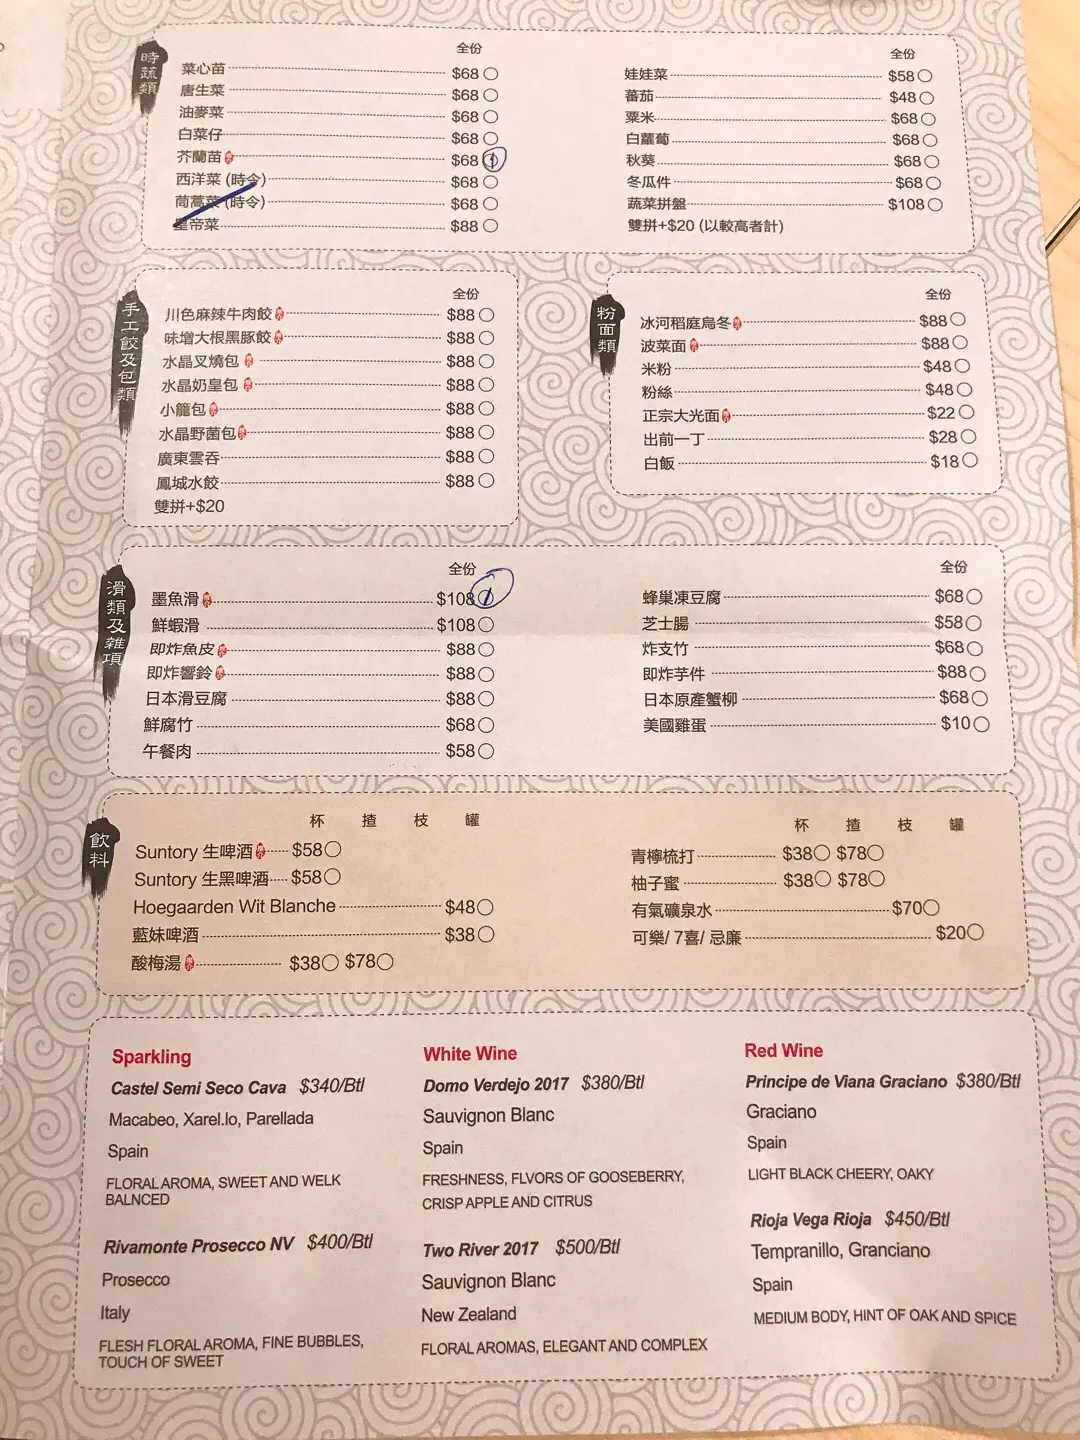 時蔬類
全份
菜心苗 $68
唐生菜 $68
油麥菜 $68
白菜仔 $68
芥蘭苗 $68 1
西洋菜 (時令) $68
茼蒿菜 (時令) $68
皇帝菜 $88
全份
娃娃菜 $58
蕃茄 $48
粟米 $68
白蘿蔔 $68
秋葵 $68
冬瓜件 $68
蔬菜拼盤 $108
雙拼+$20 (以較高者計)
手工餃及包類
全份
川色麻辣牛肉餃 $88
味增大根黑豚餃 $88
水晶叉燒包 $88
水晶奶皇包 $88
小籠包 $88
水晶野菌包 $88
廣東雲吞 $88
鳳城水餃 $88
雙拼+$20
粉面類
全份
冰河稻庭烏冬 $88
波菜面 $88
米粉 $48
粉絲 $48
正宗大光面 $22
出前一丁 $28
白飯 $18
滑類及雜項
全份
墨魚滑 $108 1
鮮蝦滑 $108
即炸魚皮 $88
即炸響鈴 $88
日本滑豆腐 $88
鮮腐竹 $68
午餐肉 $58
全份
蜂巢凍豆腐 $68
芝士腸 $58
炸支竹 $68
即炸芋件 $88
日本原產蟹柳 $68
美國雞蛋 $10
飲料
杯 揸 枝 罐
Suntory 生啤酒 $58
Suntory 生黑啤酒 $58
Hoegaarden Wit Blanche $48
藍妹啤酒 $38
酸梅湯 $38 $78
杯 揸 枝 罐
青檸梳打 $38 $78
柚子蜜 $38 $78
有氣礦泉水 $70
可樂/ 7喜/ 忌廉 $20
Sparkling
Castel Semi Seco Cava $340/Btl
Macabeo, Xarel.lo, Parellada
Spain
FLORAL AROMA, SWEET AND WELK
BALNCED
Rivamonte Prosecco NV $400/Btl
Prosecco
Italy
FLESH FLORAL AROMA, FINE BUBBLES,
TOUCH OF SWEET
White Wine
Domo Verdejo 2017 $380/Btl
Sauvignon Blanc
Spain
FRESHNESS, FLVORS OF GOOSEBERRY,
CRISP APPLE AND CITRUS
Two River 2017 $500/Btl
Sauvignon Blanc
New Zealand
FLORAL AROMAS, ELEGANT AND COMPLEX
Red Wine
Principe de Viana Graciano $380/Btl
Graciano
Spain
LIGHT BLACK CHEERY, OAKY
Rioja Vega Rioja $450/Btl
Tempranillo, Granciano
Spain
MEDIUM BODY, HINT OF OAK AND SPICE